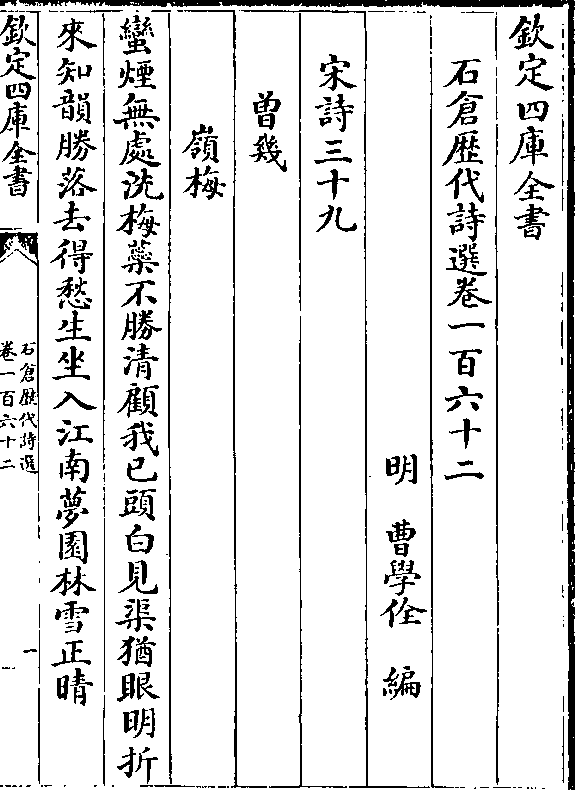 欽定四庫全書
石倉歴代詩選卷一百六十二
明　曹學佺　編
宋詩三十九
曾幾
嶺梅
蠻煙無處洗梅蘂不勝清顧我已頭白見渠猶眼明折
來知韻勝落去得愁生坐入江南夢園林雪正晴
欽定四庫全書
石倉歴代詩選
卷一百六十二
一